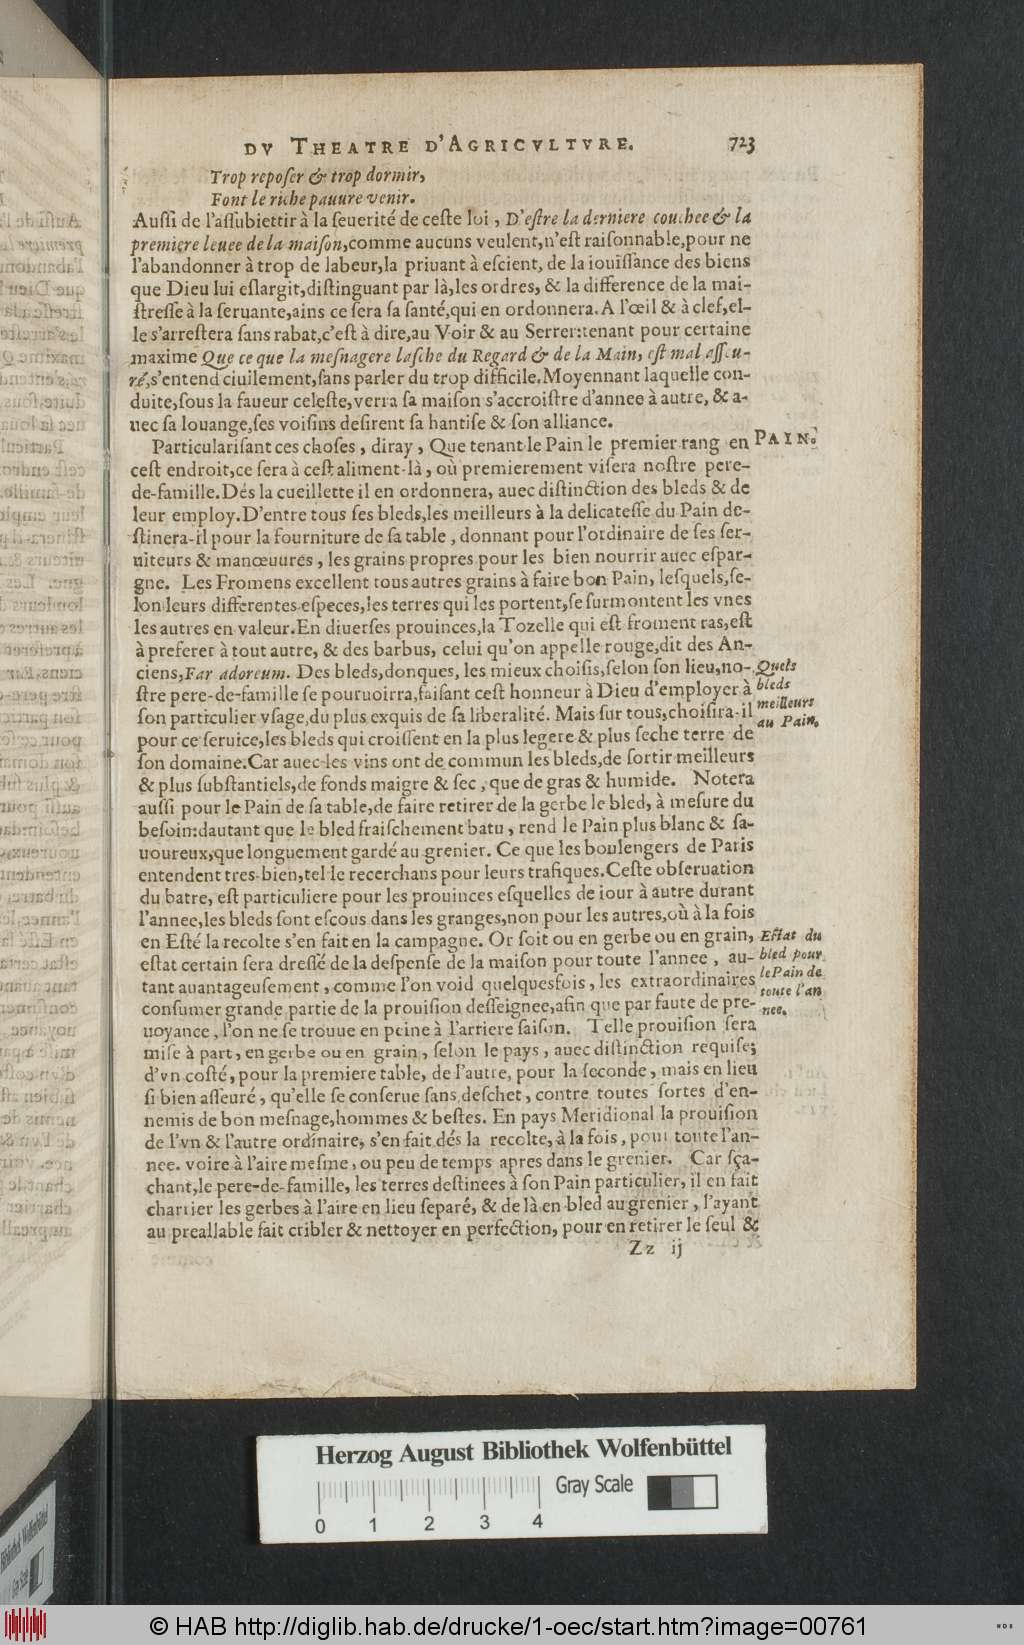 DV THEATRE D'AGRICVLTVRE. 723
Trop reposer & trop dormir,
Font le riche pauure venir.
Aussi de l'assubiettir à la seuerité de ceste loi, D'estre la derniere couchee & la
premiere leuee de la maison, comme aucuns veulent, n'est raisonnable, pour ne
l'abandonner à trop de labeur, la priuant à escient, de la iouissance des biens
que Dieu lui eslargit, distinguant par là, les ordres, & la difference de la mai-
stresse à la seruante, ains ce sera sa santé, qui en ordonnera. A l'œil & à clef, el-
le s'arrestera sans rabat, c'est à dire, au Voir & au Serrer: tenant pour certaine
maxime Que ce que la mesnagere lasche du Regard & de la Main, est mal asseu-
ré, s'entend ciuilement, sans parler du trop difficile. Moyennant laquelle con-
duite, sous la faueur celeste, verra sa maison s'accroistre d'annee à autre, & a-
uec sa louange, ses voisins desirent sa hantise & son alliance.
Particularisant ces choses, diray, Que tenant le Pain le premier rang en
PAIN.
cest endroit, ce sera à cest aliment-là, où premierement visera nostre pere-
de-famille. Dés la cueillette il en ordonnera, auec distinction des bleds & de
leur employ. D'entre tous ses bleds, les meilleurs à la delicatesse du Pain de-
stinera-il pour la fourniture de sa table, donnant pour l'ordinaire de ses ser-
uiteurs & manœuures, les grains propres pour les bien nourrir auec espar-
gne. Les Fromens excellent tous autres grains à faire bon Pain, lesquels, se-
lon leurs differentes especes, les terres qui les portent, se surmontent les vnes
les autres en valeur. En diuerses prouinces, la Tozelle qui est froment ras, est
à preferer à tout autre, & des barbus, celui qu'on appelle rouge, dit des An-
ciens, Far adoreum. Des bleds, donques, les mieux choisis, selon son lieu, no-
stre pere-de-famille se pouruoirra, faisant cest honneur à Dieu d'employer à
son particulier vsage, du plus exquis de sa liberalité. Mais sur tous, choisira-il
Quels
bleds
meilleurs
au Pain.
pour ce seruice, les bleds qui croissent en la plus legere & plus seche terre de
son domaine. Car auec les vins ont de commun les bleds, de sortir meilleurs
& plus substantiels, de fonds maigre & sec, que de gras & humide. Notera
aussi pour le Pain de sa table, de faire retirer de la gerbe le bled, à mesure du
besoin: dautant que le bled fraischement batu, rend le Pain plus blanc & sa-
uoureux, que longuement gardé au grenier. Ce que les boulengers de Paris
entendent tres-bien, tel le recerchans pour leurs trafiques. Ceste obseruation
du batre, est particuliere pour les prouinces esquelles de iour à autre durant
l'annee, les bleds sont escous dans les granges, non pour les autres, où à la fois
en Esté la recolte s'en fait en la campagne. Or soit ou en gerbe ou en grain,
estat certain sera dressé de la despense de la maison pour toute l'annee, au-
tant auantageusement, comme l'on void quelquesfois, les extraordinaires
consumer grande partie de la prouision desseignee, afin que par faute de pre-
Estat du
bled pour
le Pain de
toute l'an
nee.
uoyance, l'on ne se trouue en peine à l'arriere saison. Telle prouision sera
mise à part, en gerbe ou en grain, selon le pays, auec distinction requise;
d'vn costé, pour la premiere table, de l'autre, pour la seconde, mais en lieu
si bien asseuré, qu'elle se conserue sans deschet, contre toutes sortes d'en-
nemis de bon mesnage, hommes & bestes. En pays Meridional la prouision
de l'vn & l'autre ordinaire, s'en fait dés la recolte, à la fois, pour toute l'an-
nee. voire à l'aire mesme, ou peu de temps apres dans le grenier. Car sça-
chant, le pere-de-famille, les terres destinees à son Pain particulier, il en fait
charrier les gerbes à l'aire en lieu separé, & de là en bled au grenier, l'ayant
au preallable fait cribler & nettoyer en perfection, pour en retirer le seul &
Zz ij
Herzog August Bibliothek Wolfenbüttel
Gray Scale
0 1 2 3 4
© HAB http://diglib.hab.de/drucke/1-oec/start.htm?image=00761